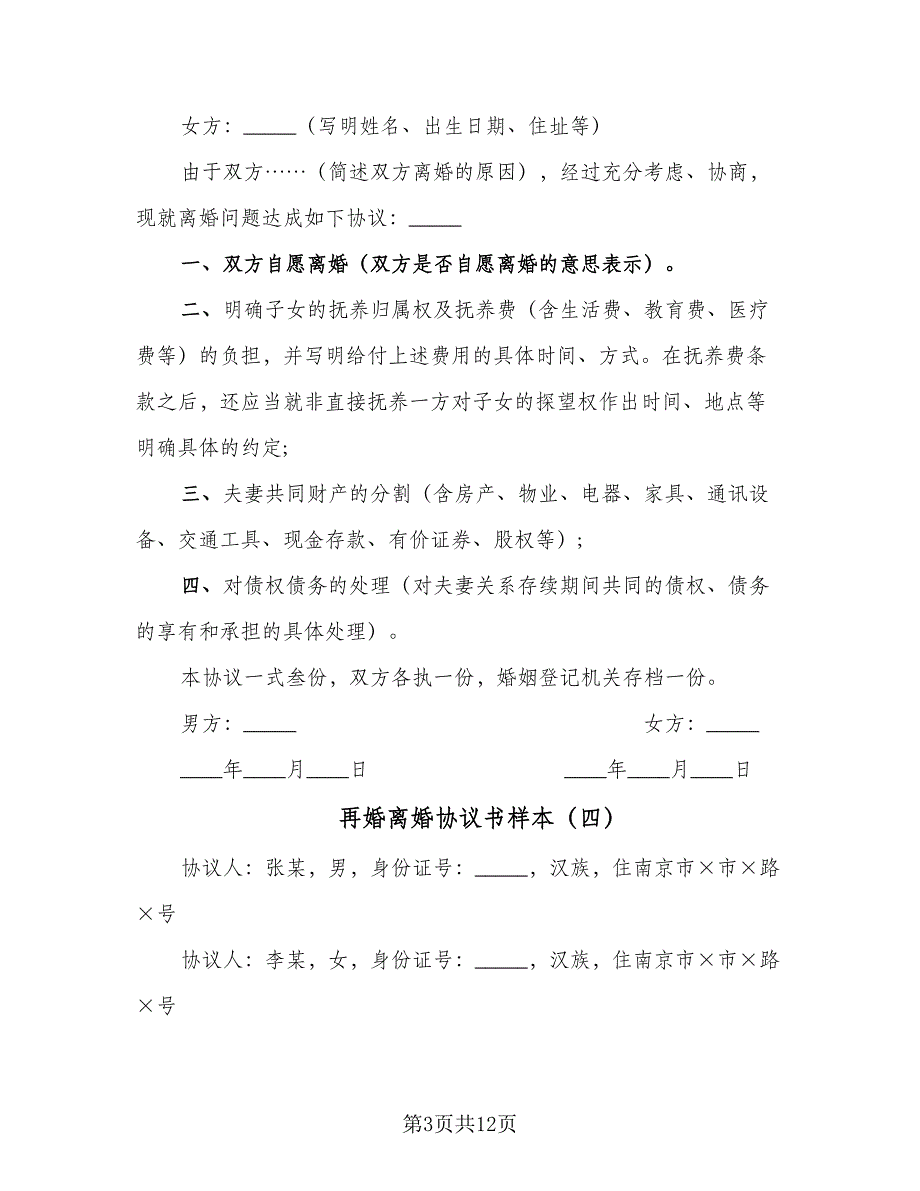 女方：_____（写明姓名、出生日期、住址等）
由于双方……（简述双方离婚的原因），经过充分考虑、协商，
现就离婚问题达成如下协议：_____
一、双方自愿离婚（双方是否自愿离婚的意思表示）。
二、明确子女的抚养归属权及抚养费（含生活费、教育费、医疗
费等）的负担，并写明给付上述费用的具体时间、方式。在抚养费条
款之后，还应当就非直接抚养一方对子女的探望权作出时间、地点等
明确具体的约定;
三、夫妻共同财产的分割（含房产、物业、电器、家具、通讯设
备、交通工具、现金存款、有价证券、股权等）;
四、对债权债务的处理（对夫妻关系存续期间共同的债权、债务
的享有和承担的具体处理）。
本协议一式叁份，双方各执一份，婚姻登记机关存档一份。
男方：_____ 女方：_____
____年____月____日 ____年____月____日
再婚离婚协议书样本（四）
协议人：张某，男，身份证号：_____，汉族，住南京市×市×路
×号
协议人：李某，女，身份证号：_____，汉族，住南京市×市×路
×号
第3页共12页